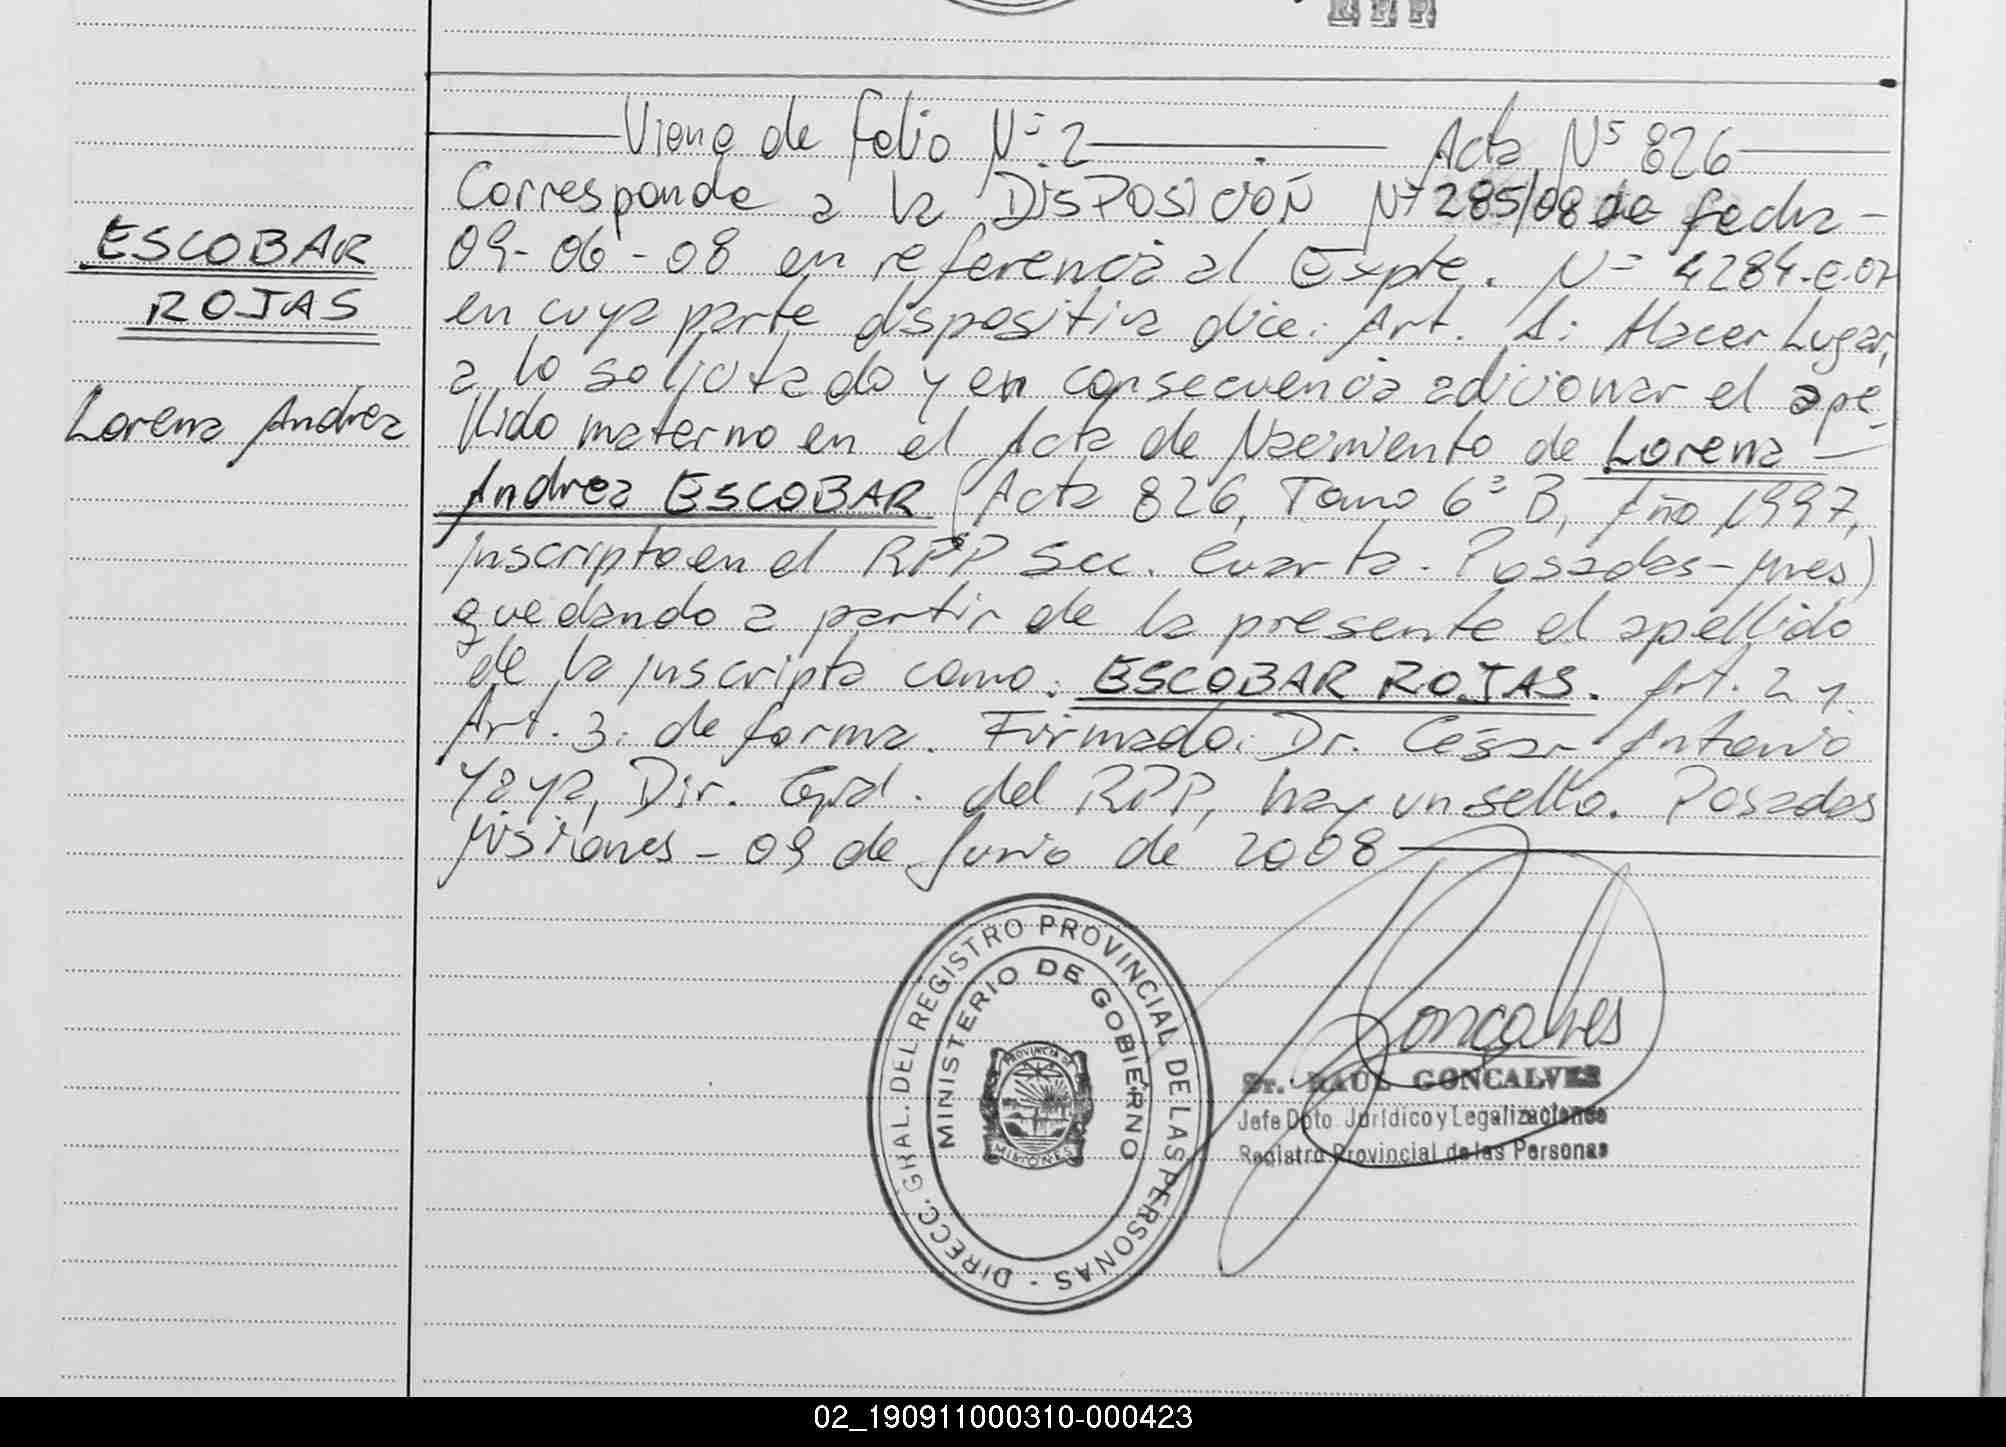 R.P.P.
Viene de folio Nº 2 Acta Nº 826
Corresponde a la DISPOSICIÓN Nº 285/08 de fecha -
ESCOBAR
ROJAS
Lorena Andrea
09-06-08 en referencia al Expte. Nº 4284-E-07
en cuya parte dispositiva dice: Art. 1: Hacer Lugar,
a lo solicitado y en consecuencia adicionar el ape-
llido materno en el Acta de Nacimiento de Lorena -
Andrea ESCOBAR (Acta 826, Tomo 6º B, Año 1997,
Inscripto en el RPP Secc. Cuarta. Posadas-Mnes)
quedando a partir de la presente el apellido
de la inscripta como: ESCOBAR ROJAS. Art. 2 y.
Art. 3: de forma. Firmado: Dr. César Antonio
Yaya, Dir. Gral. del RPP, hay un sello. Posadas
Misiones - 09 de Junio de 2008
DIRECC. GRAL. DEL REGISTRO PROVINCIAL DE LAS PERSONAS -
MINISTERIO DE GOBIERNO
PROVINCIA DE
MISIONES
Goncalves
Sr. RAUL GONCALVES
Jefe Dpto. Jurídico y Legalizaciones
Registro Provincial de las Personas
02_190911000310-000423